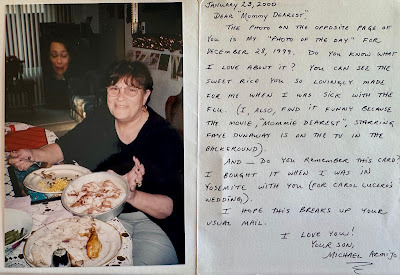 JANUARY 23, 2000
DEAR "MOMMY DEAREST"
THE PHOTO ON THE OPPOSITE PAGE OF
YOU IS MY "PHOTO OF THE DAY" FOR
DECEMBER 28, 1999. DO YOU KNOW WHAT
I LOVE ABOUT IT? YOU CAN SEE THE
SWEET RICE YOU SO LOVINGLY MADE
FOR ME WHEN I WAS SICK WITH THE
FLU. (I, ALSO, FIND IT FUNNY BECAUSE
THE MOVIE, "MOMMIE DEAREST", STARRING
FAYE DUNAWAY IS ON THE TV IN THE
BACKGROUND).
AND — DO YOU REMEMBER THIS CARD?
I BOUGHT IT WHEN I WAS IN
YOSEMITE WITH YOU (FOR CAROL LUCERO'S
WEDDING).
I HOPE THIS BREAKS UP YOUR
USUAL MAIL.
I LOVE YOU!
YOUR SON,
MICHAEL ARMIJO